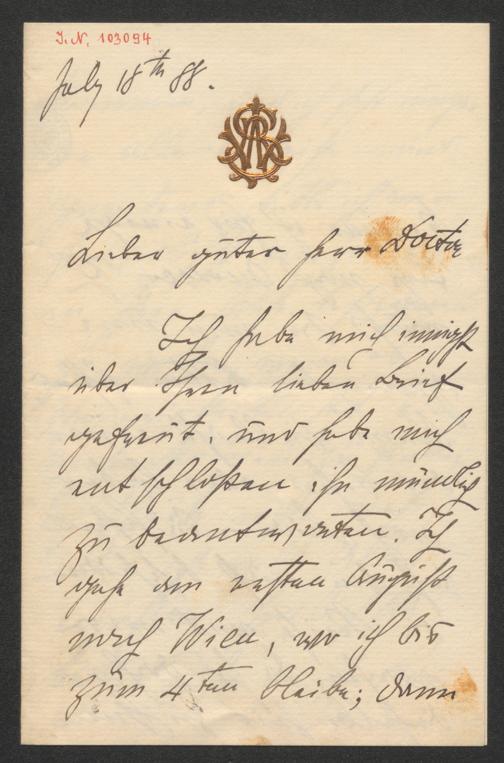 I.N. 103094
July 18th 88.
Lieber guter Herr Doctor
Ich habe mich innigst
über Ihren lieben Brief
gefreut, und habe mich
entschloßen ihn mündlich
zu beantworten. Ich
gehe am ersten August
nach Wien, wo ich bis
zum 4ten bleibe; dann